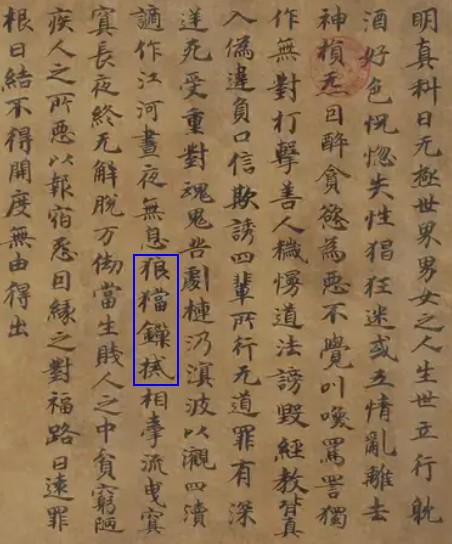 明真科曰无極世界男女之人生世立行躭
酒好色怳惚失性猖狂迷或五情亂離去
神損炁因醉貪慾為惡不覺叫喚罵詈獨
作無對打擊善人穢慢道法謗毀經教背真
入偽違負口信欺誘四輩所行无道罪有深
逆死受重對魂鬼苦劇溟波以灌四瀆
謫作江河晝夜無息狼檔鏁械相牽流曳寘
寘長夜終无解脫万劫當生賤人之中貧窮陋
疾人之所惡以報宿惡因緣之對福路日遠罪
根日結不得開度無由得出